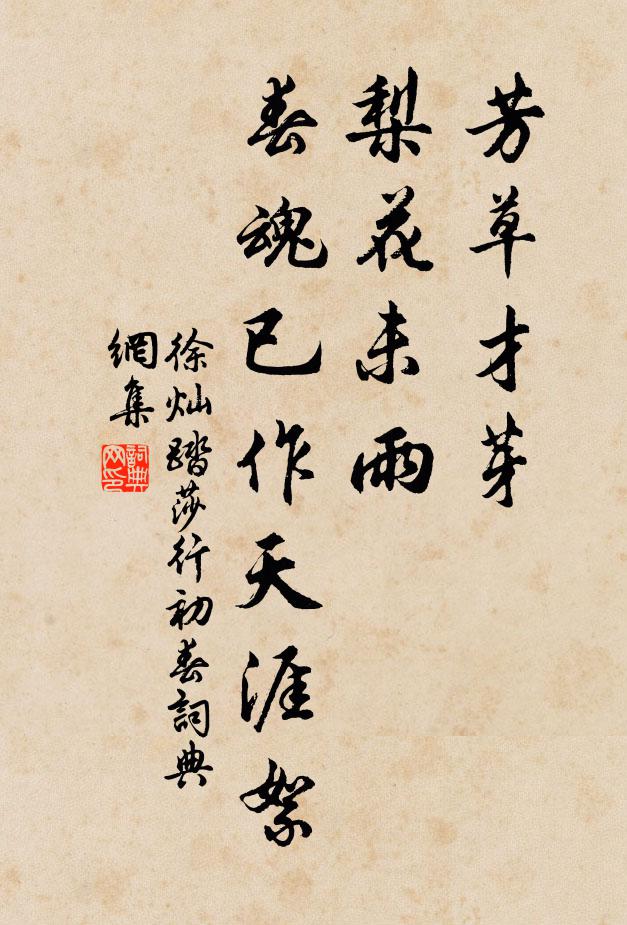 芳草才芽
梨花未雨
春魂已作天涯絮
徐灿踏莎行初春詞典
網集
詞典
网印